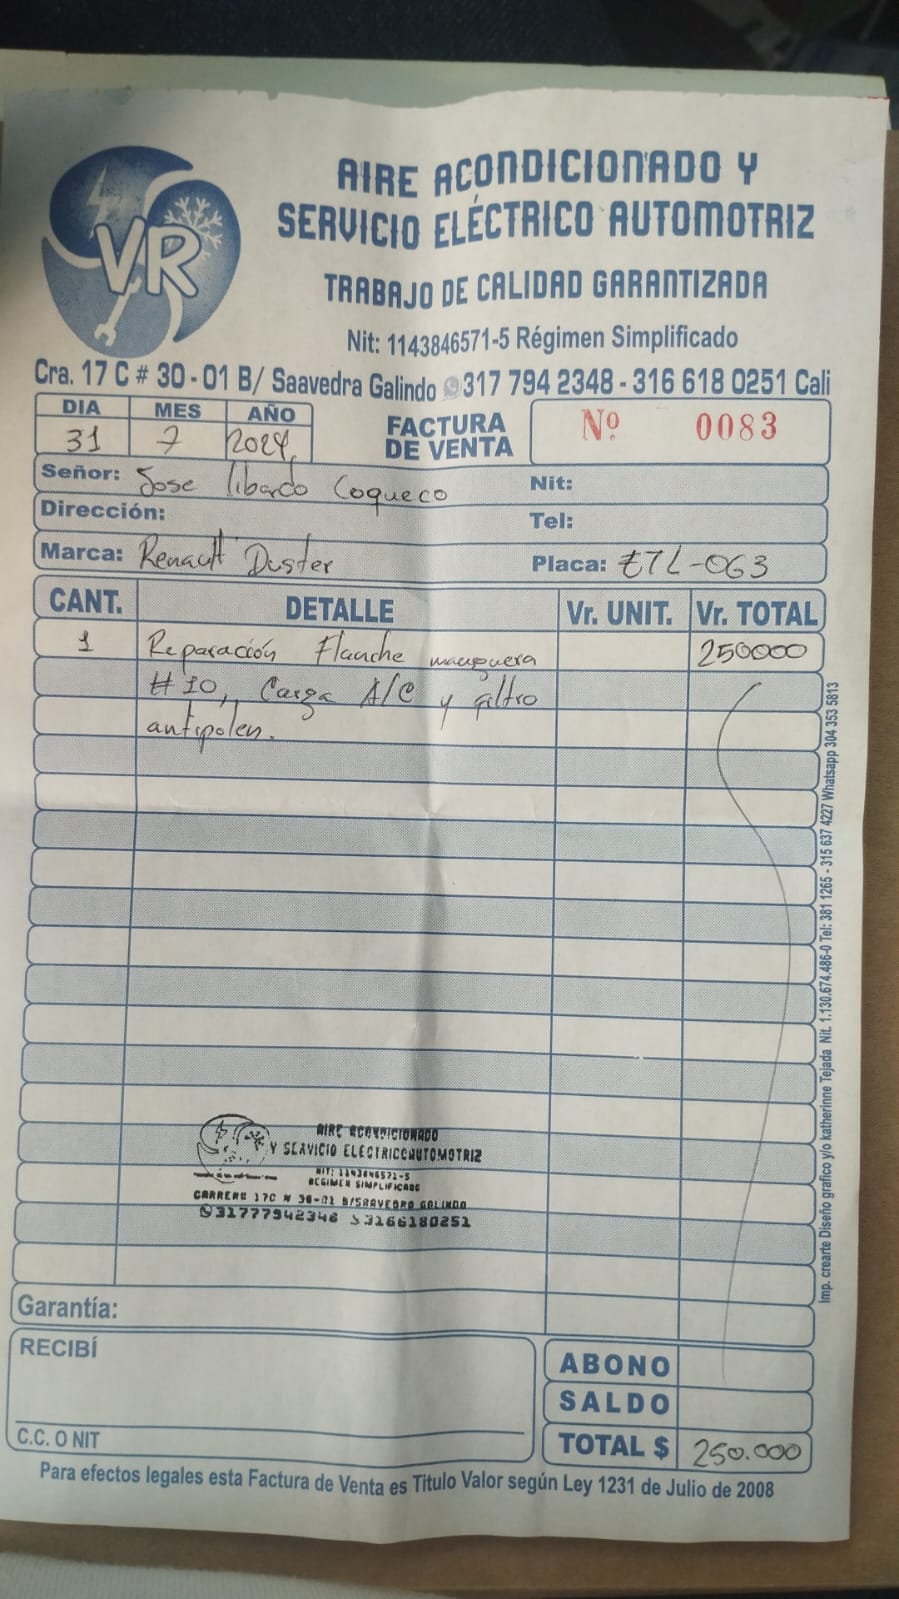 VR
AIRE ACONDICIONADO Y
SERVICIO ELÉCTRICO AUTOMOTRIZ
TRABAJO DE CALIDAD GARANTIZADA
Nit: 1143846571-5 Régimen Simplificado
Cra. 17 C # 30 - 01 B/ Saavedra Galindo 317 794 2348 - 316 618 0251 Cali
DIA MES AÑO
31 7 2024
FACTURA
DE VENTA
Nº 0083
Señor: Jose libardo Coqueco Nit:
Dirección: Tel:
Marca: Renault Duster Placa: ETL-063
CANT. DETALLE Vr. UNIT. Vr. TOTAL
1 Reparación Flanche manguera 250000
#10, Carga A/C y filtro
antipolen.
AIRE ACONDICIONADO
Y SERVICIO ELECTRICO AUTOMOTRIZ
NIT: 1143846571-5
REGIMEN SIMPLIFICADO
CARRERA 17C N 30-01 B/SAAVEDRA GALINDO
31777942348 3166180251
Garantía:
RECIBÍ
C.C. O NIT
ABONO
SALDO
TOTAL $ 250.000
Para efectos legales esta Factura de Venta es Titulo Valor según Ley 1231 de Julio de 2008
Imp. crearte Diseño grafico y/o katherinne Tejada Nit. 1.130.674.486-0 Tel: 381 1265 - 315 637 4227 Whatsapp 304 353 5813